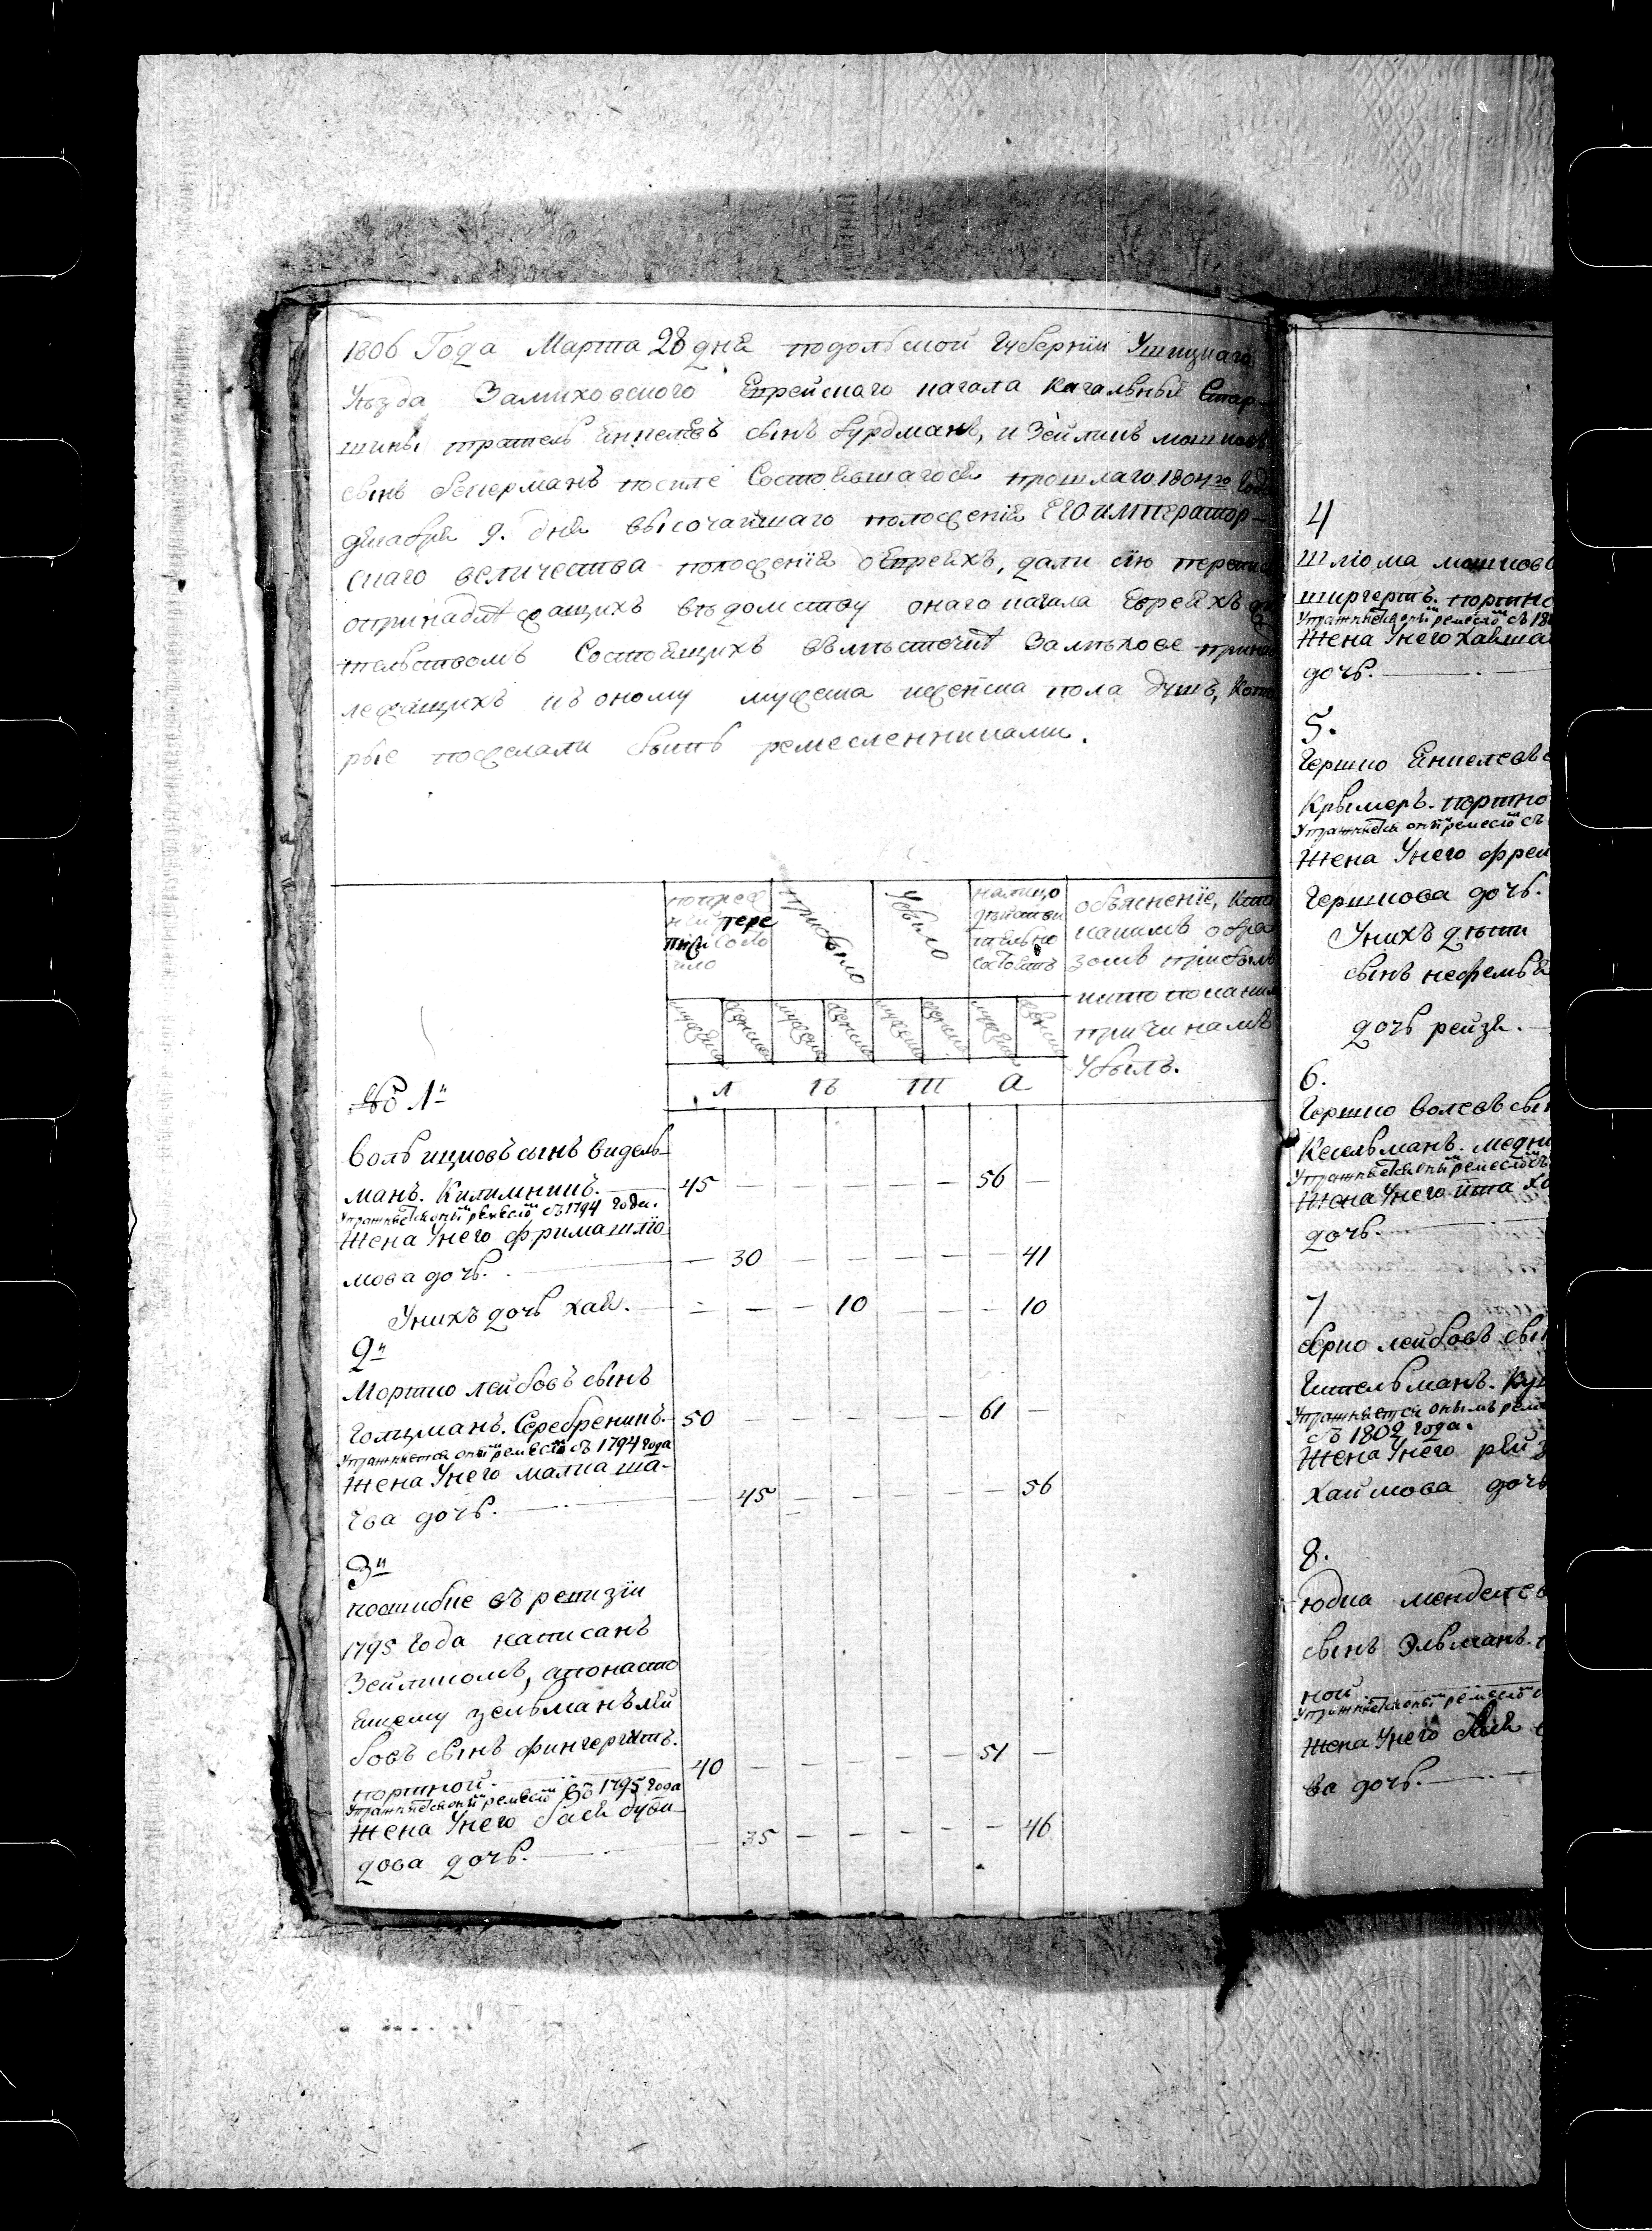 1806 Года Марта 28 дня подольской Губернїи Ушицкаго
Уезда Замиховского Еврейскаго кагала Кагальныя Стар-
шины сынъ бурдманъ, и Зейликъ мошковъ
сынъ после Состоявшагося прошлаго 1804го Года
декабря 9. дня высочайшаго положенїя ЕГО император-
скаго величества положенїя оЕвреяхъ, дали сїю
опринадлежащихъ ведомству онаго кагала Евреяхъ
тельствомъ Состоящихъ вместечке Замехове
лежащихъ къ оному мужеска иженска пола душъ, Кото
рые пожелали быть ремесленниками.
попреж
ней пере
писи состо
яло
Прибыло
Убыло
налицо
действи
тельно
состоитъ
обяснение, кто
какимъ обра
зомъ прибылъ
икто покакимъ
причинамъ
Убылъ.
мужеска женска мужеска женска мужеска женска мужеска женска
№ 1й
Воль ицковъ сынъ видель-
манъ. Килимникъ. 45 — — — — — 56 —
Упражняется онымъ ремесломъ съ 1794 года.
Жена Унего фрима шлїо-
мова дочь. — 30 — — — — — 41
Унихъ дочь хая. — — — 10 — — — 10
2й
Моршко лейбовъ сынъ
Голцманъ. Серебреникъ. 50 — — — — — 61 —
Упражняется онымъ ремесломъ съ 1794 года
Жена Унего малка ша-
ева дочь. — 45 — — — — — 56
3й
поошибке въ ревизїи
1795 года написанъ
Зейликомъ, апонасто
ящему зельманъ лей
бовъ сынъ фингергутъ.
портной. 40 — — — — — 51 —
Упражняется онымъ ремесломъ съ 1795 года
Жена Унего бася
дова дочь. — 35 — — — — — 46
4
Шлїома мошковъ
портно
Упражняется онымъ ремесломъ съ 180
Жена Унего
дочь.
5.
Гершко Янкелевъ с
Крымеръ. портно
Упражняется онымъ ремесломъ съ
Жена Унего фрей
Гершкова дочь.
Унихъ дети
сынъ
дочь рейзя.
6.
Гершко Волевъ сын
Кесельманъ. медни
Упражняется онымъ ремесломъ съ
Жена Унего ита
дочь.
7
лейбовъ сын
Гительманъ.
Упражняется онымъ реме
съ 1802 года.
Жена Унего рей
Хаимова дочь
8.
Юдка менделев
сынъ Эльманъ.
ной
Упражняется онымъ ремесломъ с
Жена Унего
ва дочь.